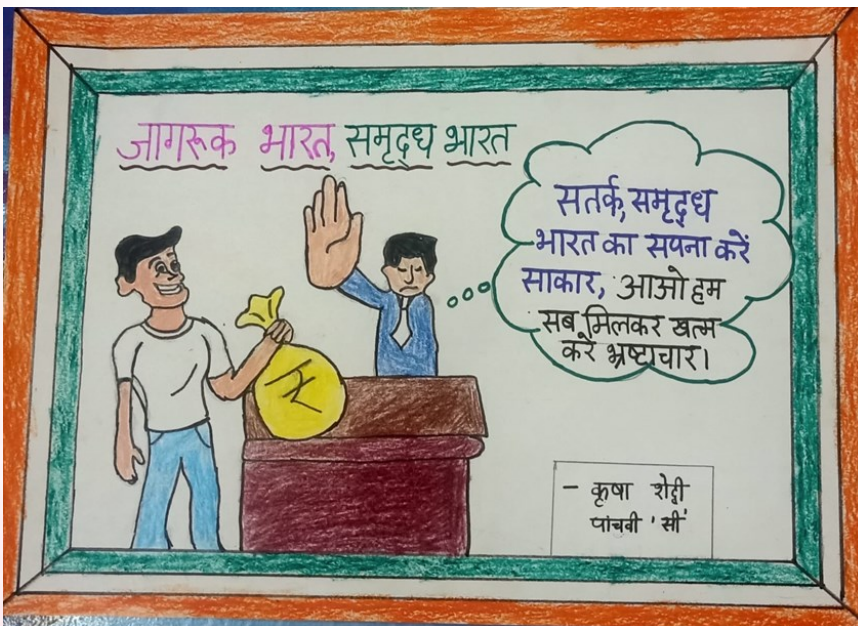 जागरूक भारत, समृद्ध भारत
सतर्क, समृद्ध
भारत का सपना करें
साकार, आओ हम
सब मिलकर खत्म
करें भ्रष्टाचार।
₹
- कृषा शेट्टी
पांचवी 'सी'